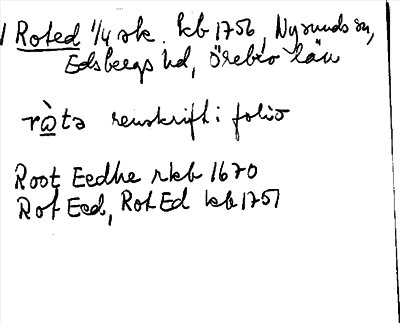 1 Roted 1/4 sk. kb 1756, Nysunds sn,
Edsbergs hd, Örebro län
ràtə renskrift i folio
Root Eedhe rkb 1670
Rot Eed, Rot Ed kb 1751